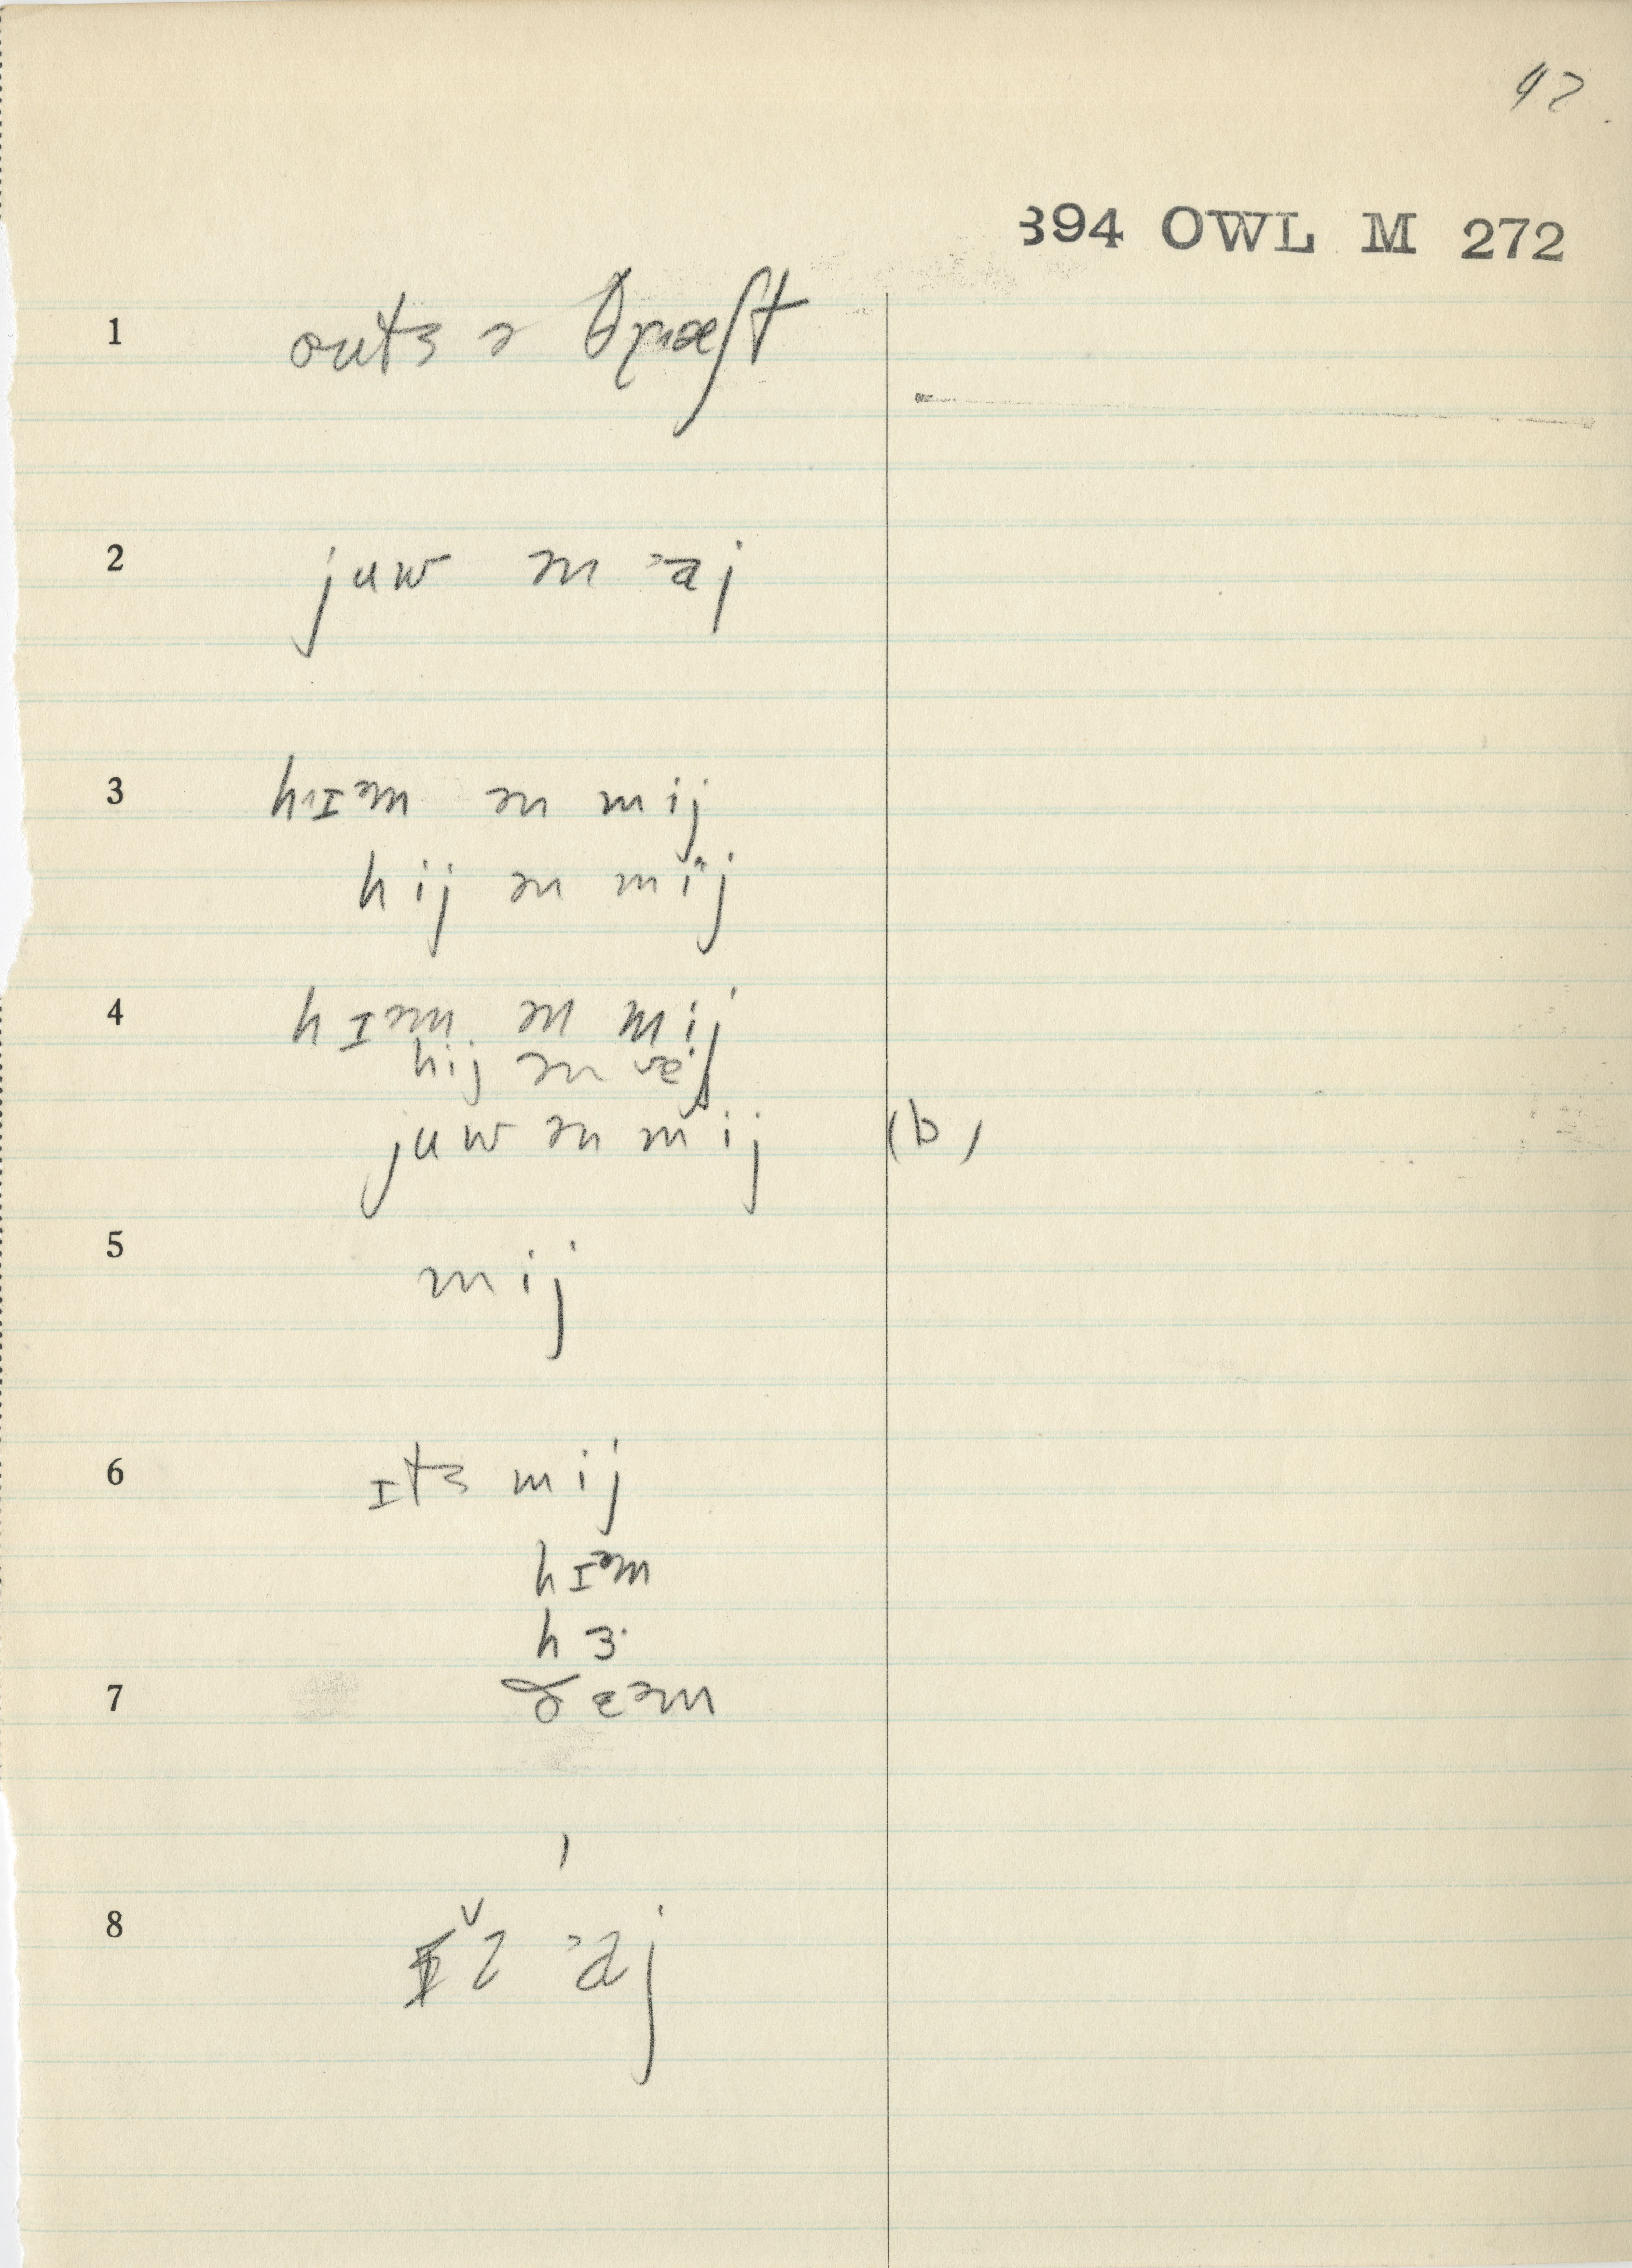 42
394 OWL M 272
1 outs ə θræʃt
2 juw ən ˈaj
3 hɪəm ən mij
hij ən mij
4 hɪəm ən mij
hij ən
juw ən mij (b)
5 mij
6 ɪts mij
hɪəm
hɜ·
7 ðɛəm
8 ˈaj